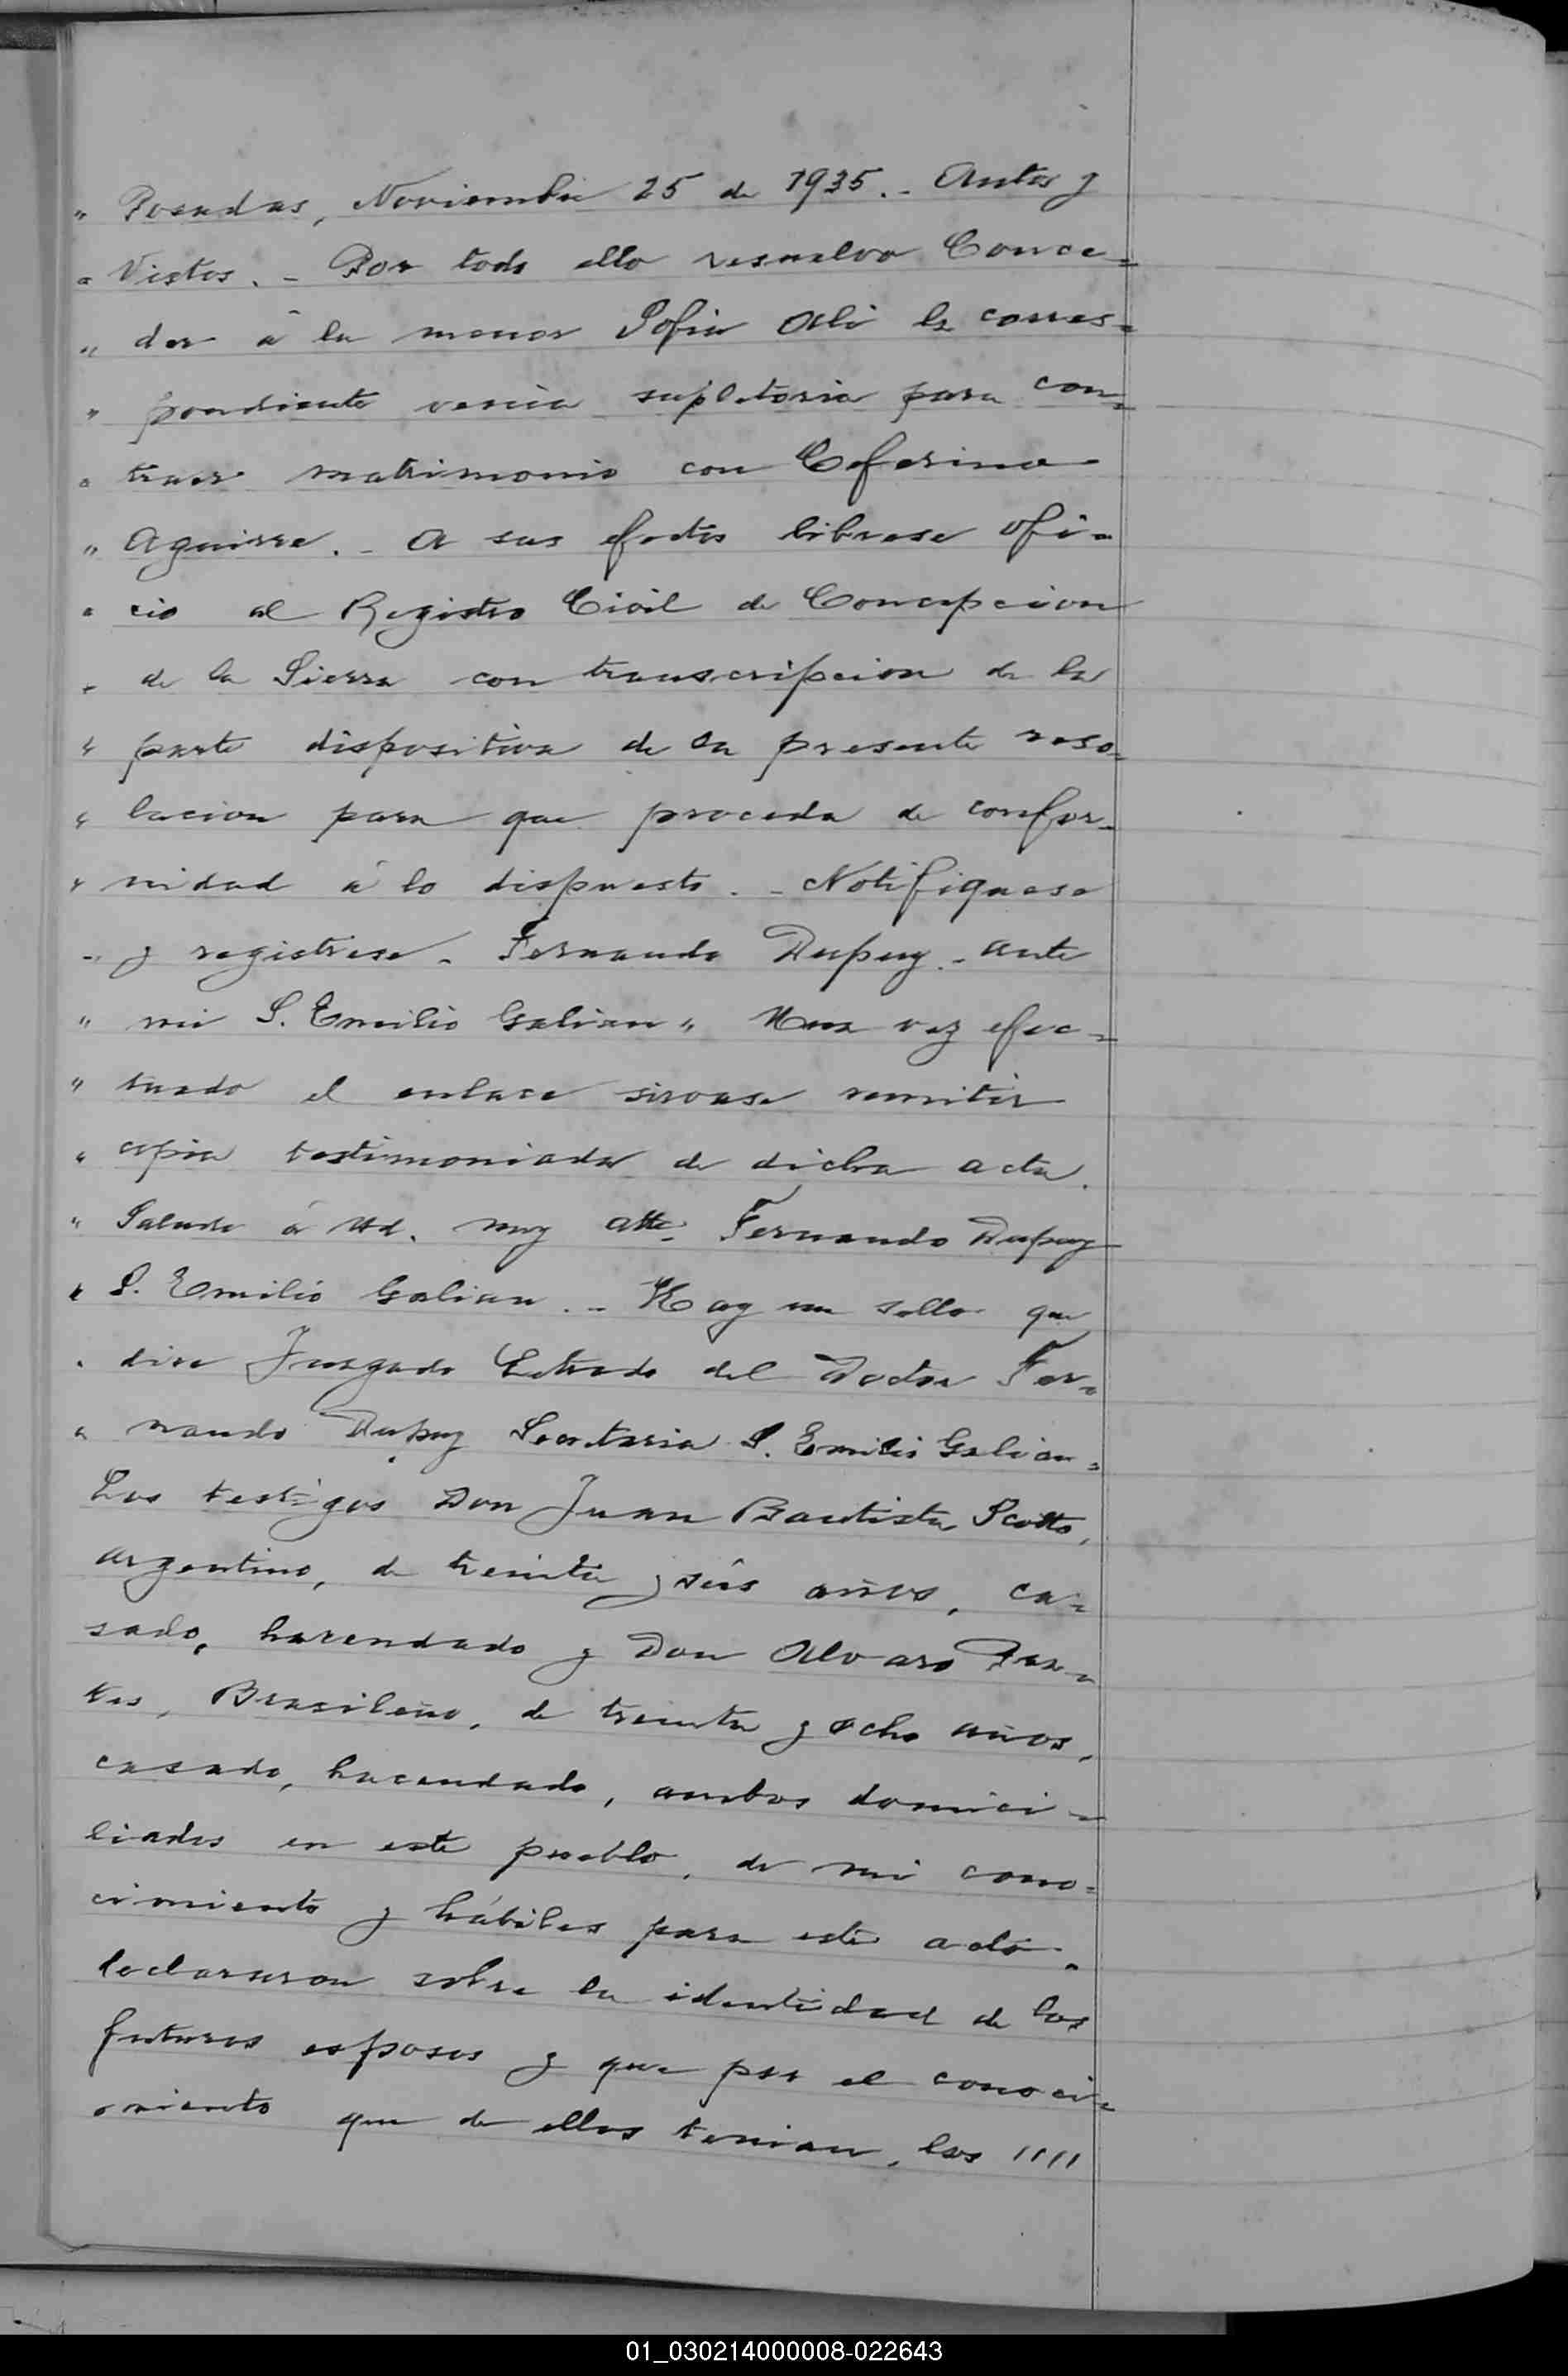 " Posadas, Noviembre 25 de 1935. - Autos y
" Vistos. - Por todo ello resuelvo Conce=
" der á la menor Sofia Ali la corres=
" pondiente venia supletoria para con=
" traer matrimonio con Ceferino
" Aguirre. - A sus efectos librese ofi=
" cio al Registro Civil de Concepcion
" de la Sierra con transcripcion de la
" parte dispositiva de la presente reso=
" lucion para que proceda de confor=
" midad á lo dispuesto. - Notifiquese
" y registrese - Fernando Dupuy. - ante
" mi S. Emilio Galian " Una vez efec=
" tuado el enlace sirvase remitir
" copia testimoniada de dicha acta.
" Saludo á Ud. muy atte. Fernando Dupuy
" S. Emilio Galian. - Hay un sello que
" dice Juzgado Letrado del Doctor Fer=
" nando Dupuy Secretaria S. Emilio Galian=
Los testigos Don Juan Bautista Scotto,
argentino, de treinta y seis años, ca=
sado, hacendado y Don Alvaro
Brasileño, de treinta y ocho años,
casado, hacendado, ambos domici=
liados en este pueblo, de mi cono=
cimiento y hábiles para este acto,
declararon sobre la identidad de los
futuros esposos y que por el conoci=
miento que de ellos tenian, los ////
01_030214000008-022643